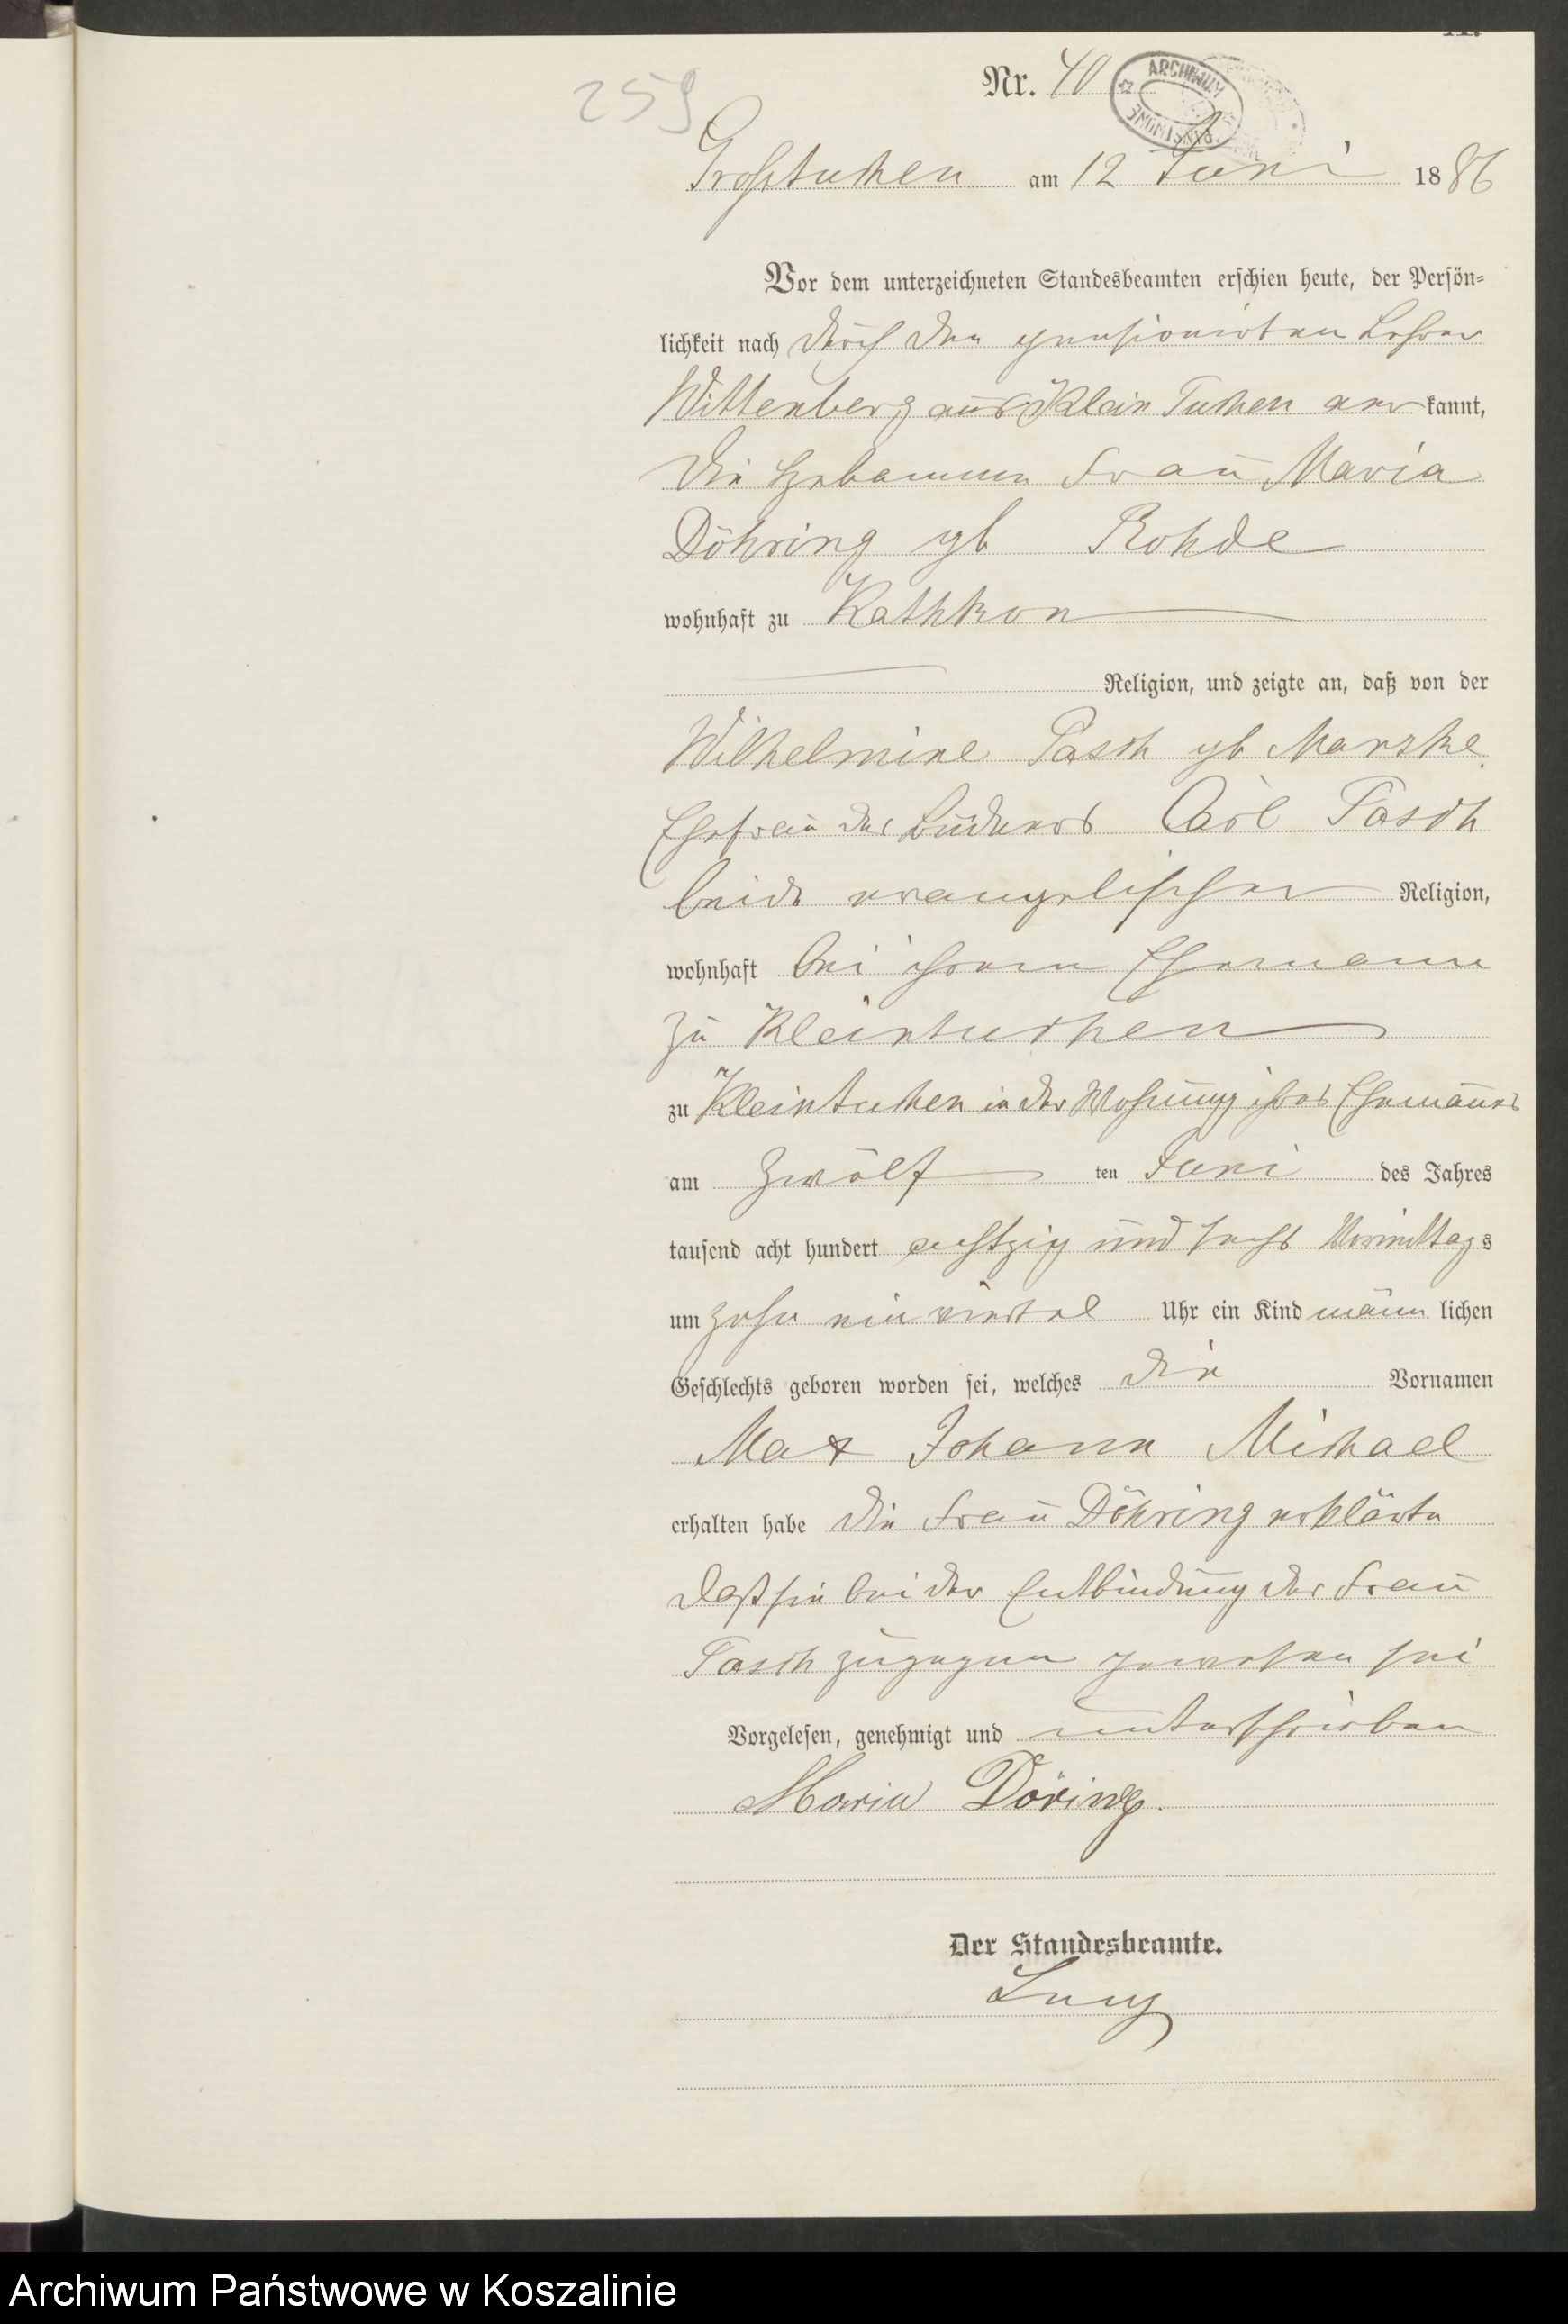 259
Nr. 40
ARCHIWUM PAŃSTWOWE
Großtuchen am 12 Juni 1886
Vor dem unterzeichneten Standesbeamten erschien heute, der Persön-
lichkeit nach durch den pensionirten Lehrer
Wittenberg aus Klein Tuchen aner kannt,
die Hebamme Frau Maria
Döhring gb Rohde
wohnhaft zu Kathkow
Religion, und zeigte an, daß von der
Wilhelmine Pasch gb Marzke
Ehefrau des Büdners Carl Pasch
beide evangelischer Religion,
wohnhaft bei ihrem Ehemann
zu Kleintuchen
zu Kleintuchen in der Wohnung ihres Ehemannes
am zwölf ten Juni des Jahres
tausend acht hundert achtzig und sechs Vormittags
um zehn ein viertel Uhr ein Kind männ lichen
Geschlechts geboren worden sei, welches die Vornamen
Max Johann Michael
erhalten habe die Frau Döhring erklärte
daß sie bei der Entbindung der Frau
Pasch zugegen gewesen sei
Vorgelesen, genehmigt und unterschrieben
Maria Döring.
Der Standesbeamte.
Archiwum Państwowe w Koszalinie